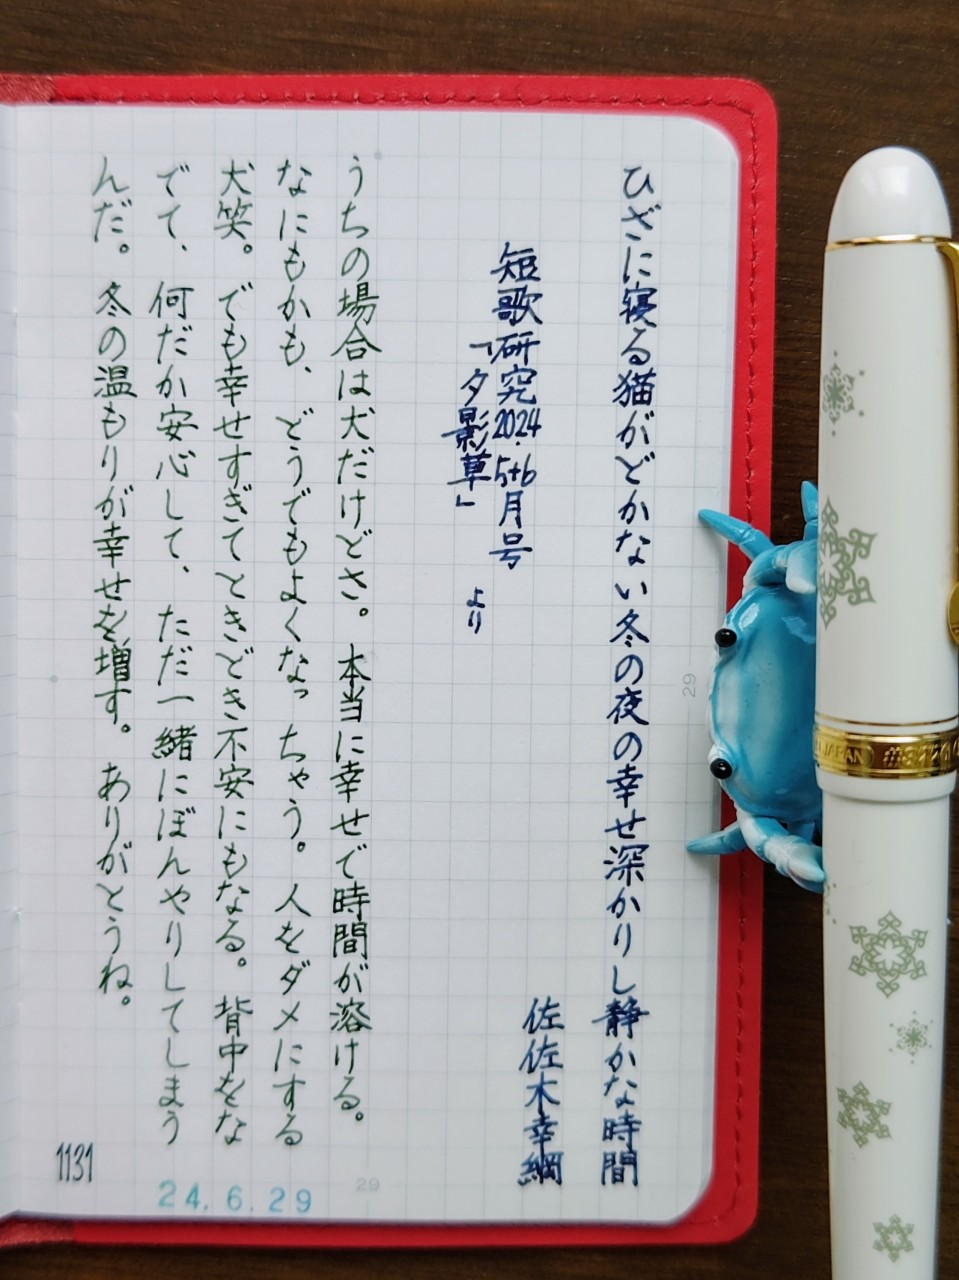 ひざに寝る猫がどかない冬の夜の幸せ深かりし静かな時間
佐佐木幸綱
短歌研究2024.5+6月号
「夕影草」より
うちの場合は犬だけどさ。本当に幸せで時間が溶ける。
なにもかも、どうでもよくなっちゃう。人をダメにする
犬笑。でも幸せすぎてときどき不安にもなる。背中をな
でて、何だか安心して、ただ一緒にぼんやりしてしまう
んだ。冬の温もりが幸せを増す。ありがとうね。
1131
24.6.29
29
29
JAPAN